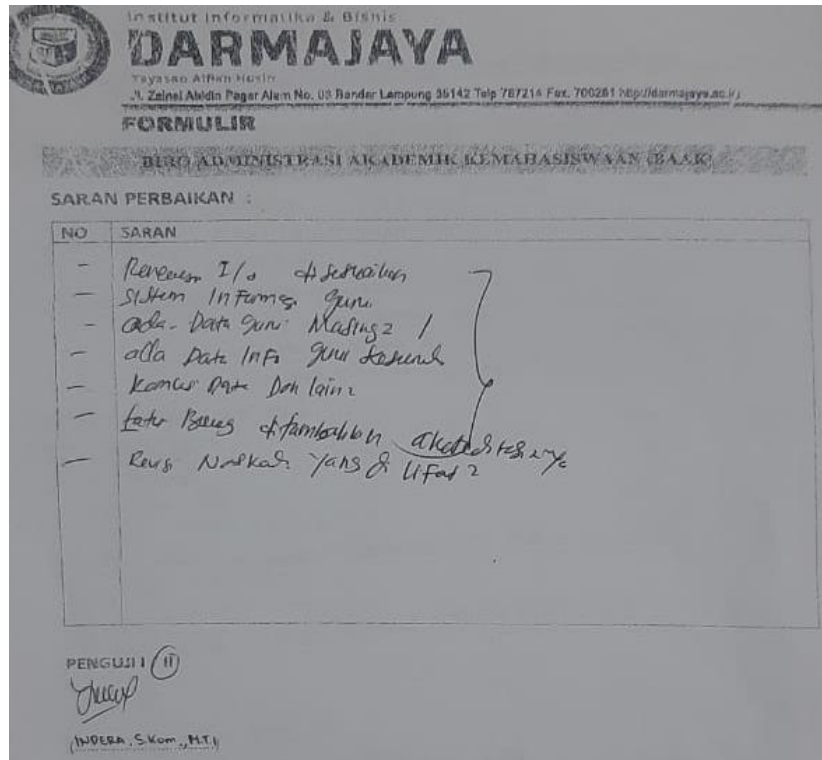 Institut Informatika & Bisnis
DARMAJAYA
Yayasan Alfian Husin
Jl. Zainal Abidin Pagar Alam No. 93 Bandar Lampung 35142 Telp 787214 Fax. 700261 http://darmajaya.ac.id
FORMULIR
BIRO ADMINISTRASI AKADEMIK KEMAHASISWAAN (BAAK)
SARAN PERBAIKAN :
NO SARAN
- I/O disesuaikan
- Sistem Informasi guru
- ada Data guru Masing2
- ada Data Info guru
- kamus Data Dan lain2
- ditambahkan
- Revisi Naskah Yang di
PENGUJI I (II)
INDERA, S.Kom., M.T.I